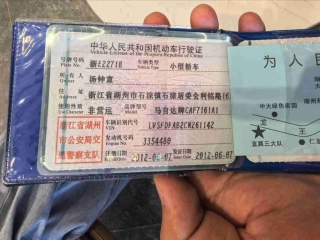 中华人民共和国机动车行驶证
Vehicle License of the People's Republic of China
号牌号码 浙E22718 车辆类型 小型轿车
Plate No. Vehicle Type
所有人 汤钟意
Owner
住址 浙江省湖州市石淙镇石淙居委会利铭路16
Address
使用性质 非营运 品牌型号 马自达牌CAF7161A1
Use Character Model
浙江省湖州
市公安局交
通警察支队
车辆识别代号 LVSFDFAB2CN261142
VIN
发动机号码 3354480
Engine No.
注册日期 2012-06-07 发证日期 2012-06-07
为人民
中大绿色家园
龙
王
直属三大队
仁